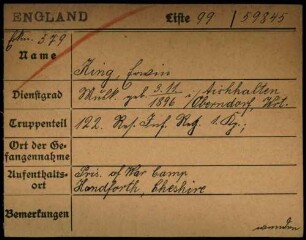 ENGLAND Liste 99 / 59345
379
Name King, Erwin
Dienstgrad Musk. geb. 3.11. 1896 Aichhalten Oberndorf,
Truppenteil 122. Res. Inf. Reg. 1. Kp;
Ort der Gefangennahme
Aufenthaltsort Pris. of War Camp
Handforth, Cheshire
Bemerkungen